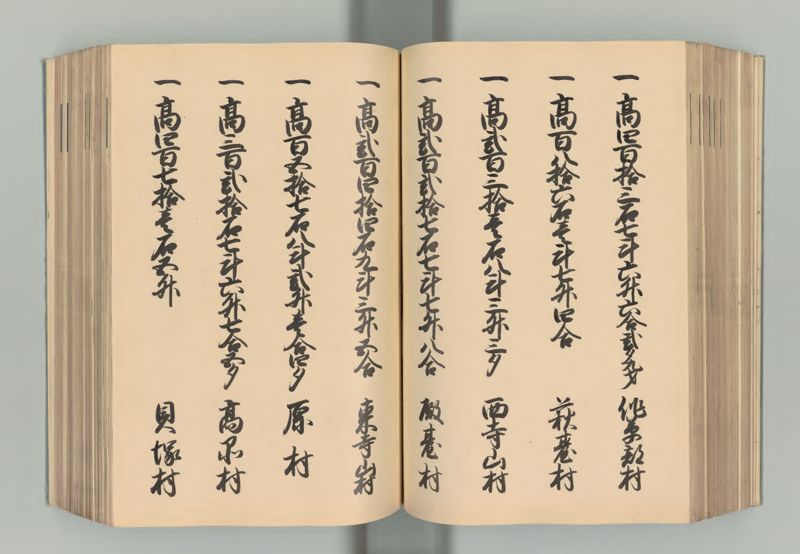 一高四百拾三石七斗六升六合弐夕九才 作草部村
一高百八拾六石壱斗七升四合 萩台村
一高弐百三拾壱石八斗三升三夕 西寺山村
一高弐百弐拾七石七斗七升八合 殿台村
一高弐百四拾四石九斗三升五合 東寺山村
一高百五拾七石八斗弐升壱合四夕 原村
一高三百弐拾石七斗六升七合五夕 高品村
一高四百七拾壱石五升 貝塚村